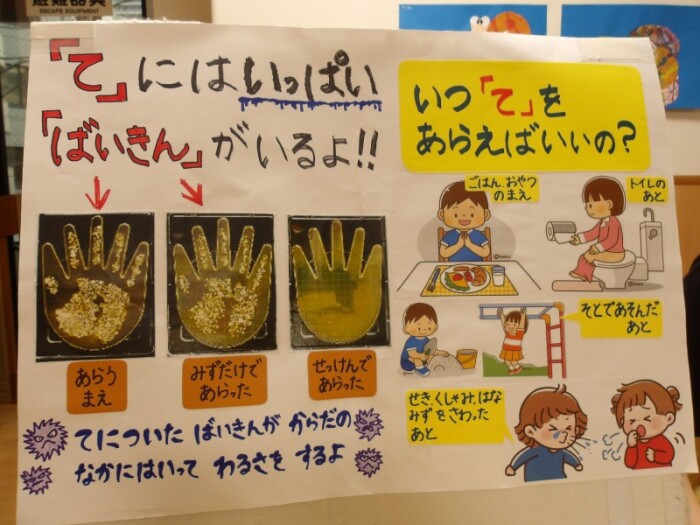 避難器具
ESCAPE EQUIPMENT
「て」にはいっぱい
「ばいきん」がいるよ!!
あらう
まえ
みずだけで
あらった
せっけんで
あらった
てについた ばいきんが からだの
なかにはいって わるさを するよ
いつ「て」を
あらえばいいの?
ごはん、おやつ
のまえ
トイレの
あと
そとであそんだ
あと
せき、くしゃみ、はな
みずをさわった
あと